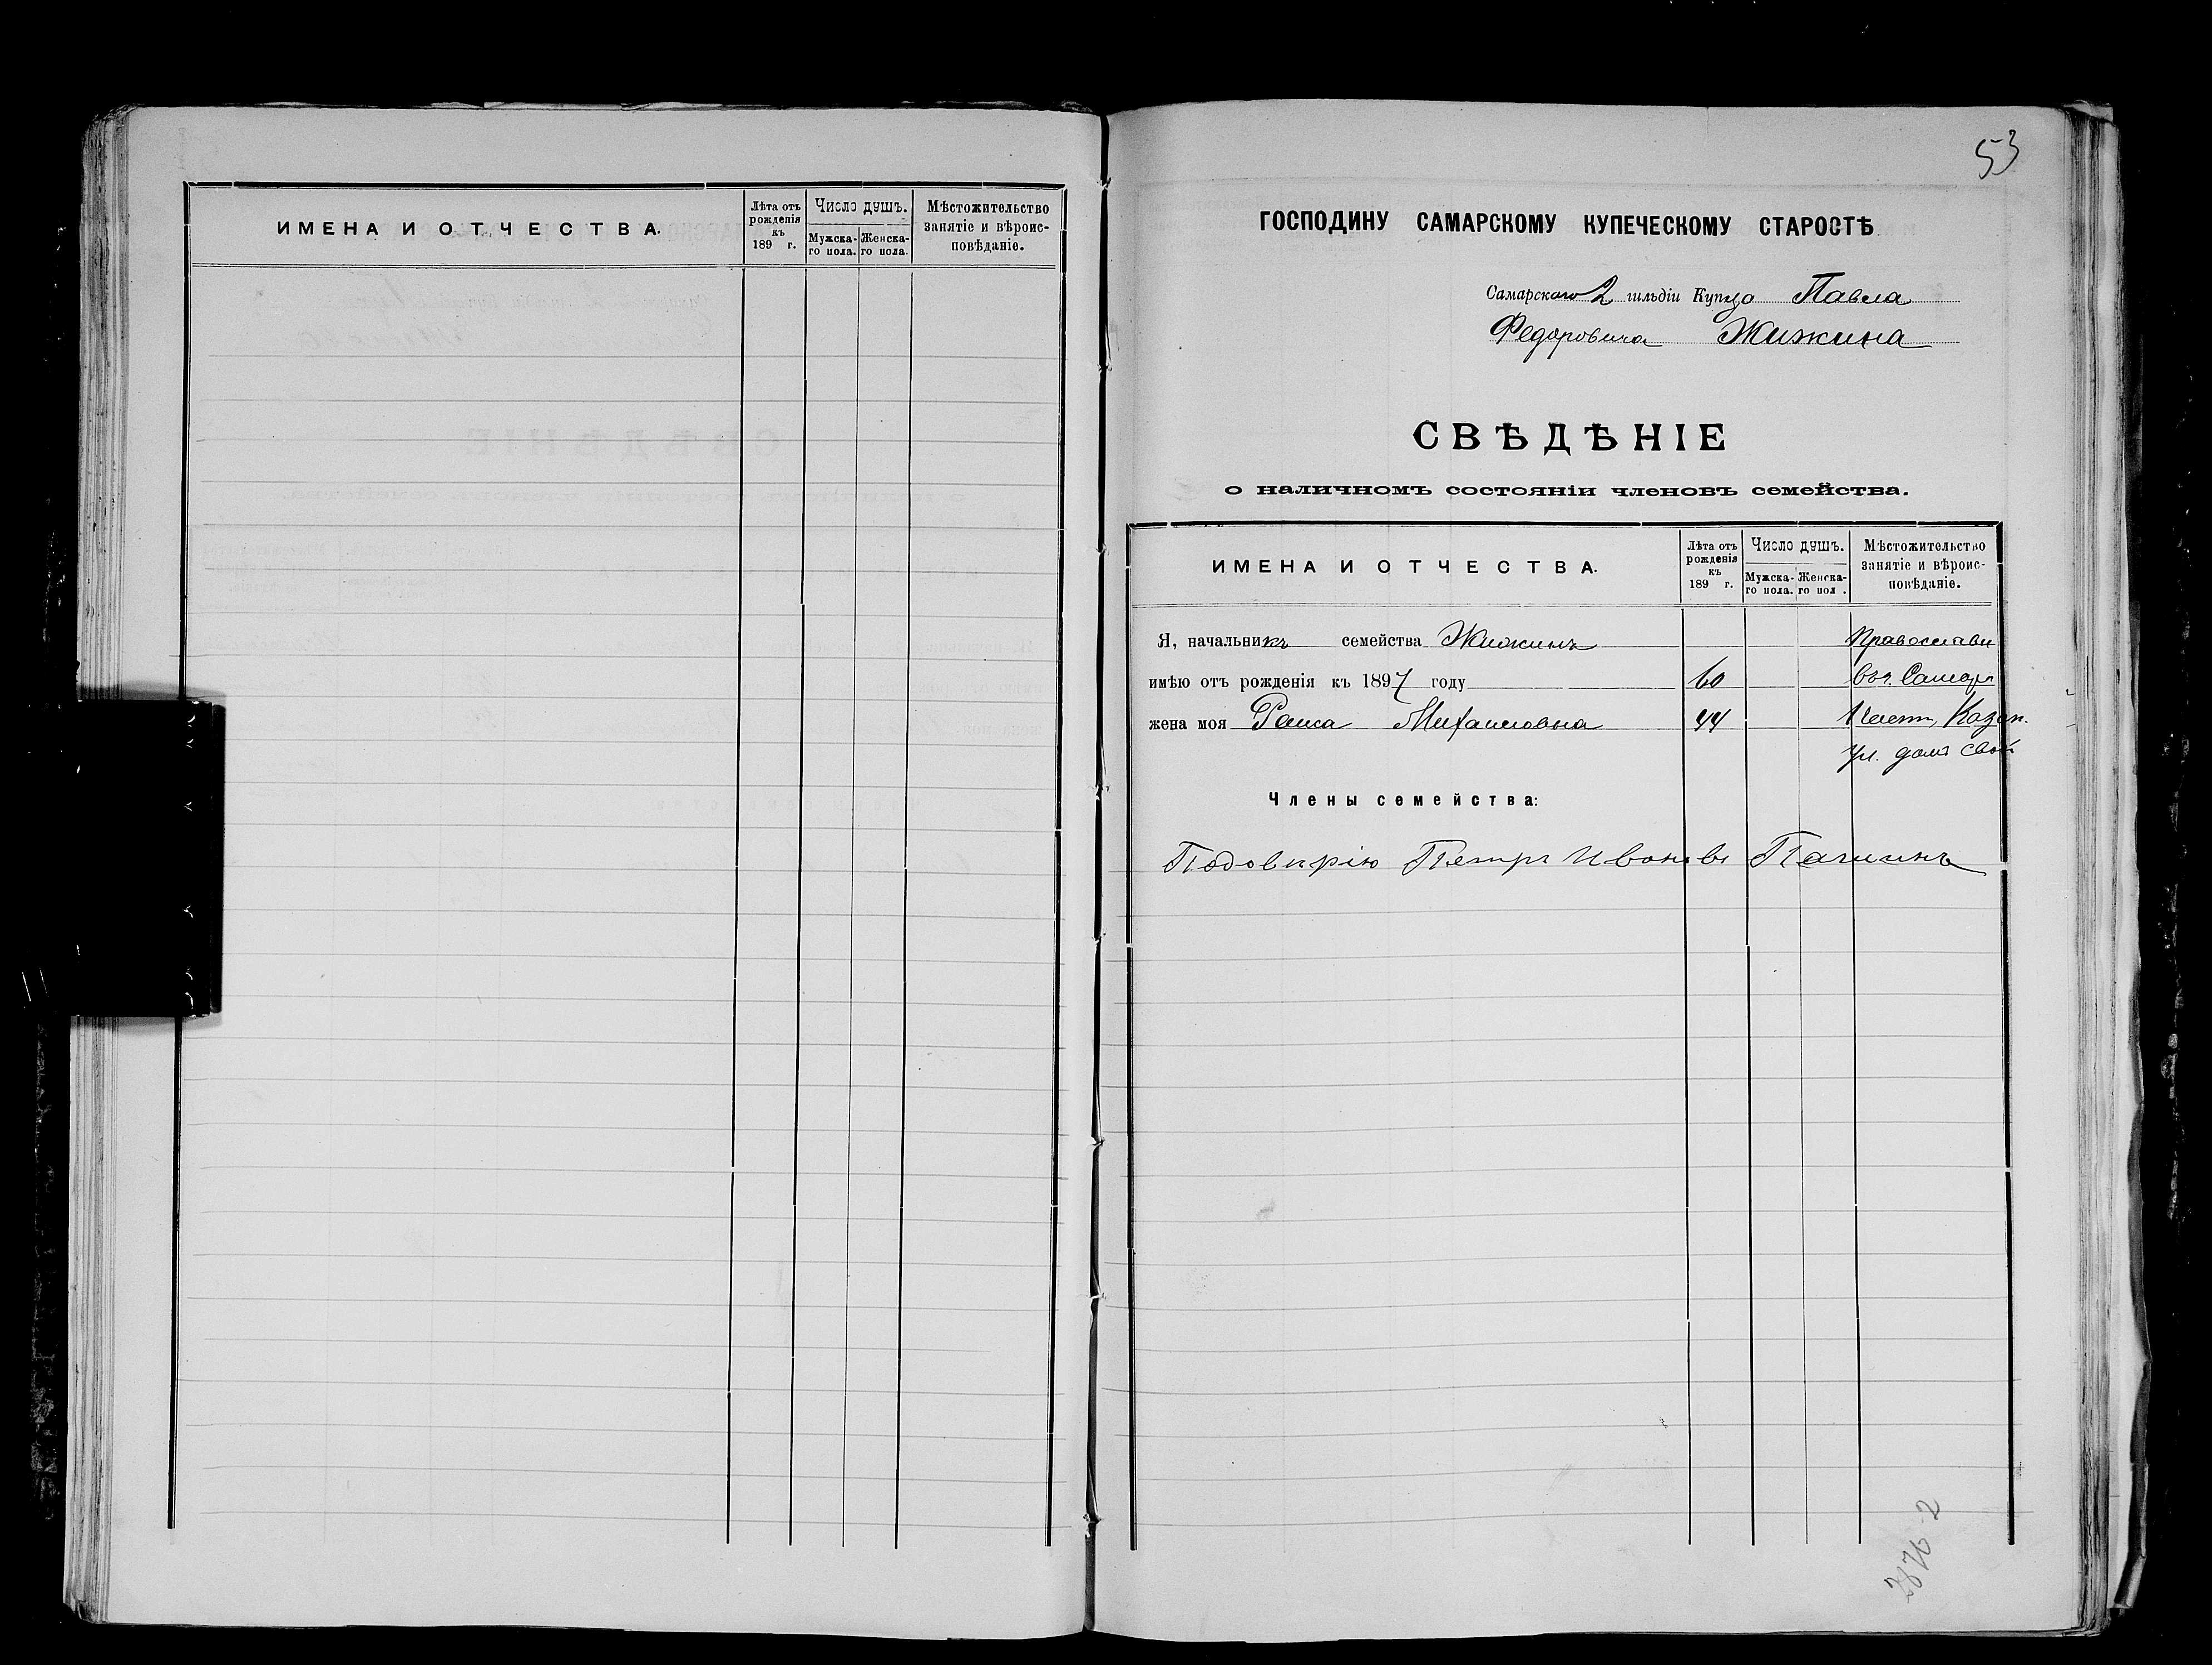 ИМЕНА И ОТЧЕСТВА.
Лѣта отъ рожденія къ 189 г.
Число душъ.
Мужска-го пола.
Женска-го пола.
Мѣстожительство занятіе и вѣроис-повѣданіе.
53
ГОСПОДИНУ САМАРСКОМУ КУПЕЧЕСКОМУ СТАРОСТѢ
Самарскаго 2 гильдіи Купца Павла
Федоровича Жижина
СВѢДѢНІЕ
о наличномъ состояніи членовъ семейства.
ИМЕНА И ОТЧЕСТВА.
Лѣта отъ рожденія къ 189 г.
Число душъ.
Мужска-го пола.
Женска-го пол .
Мѣстожительство занятіе и вѣроис-повѣданіе.
Я, начальникъ семейства Жижинъ Православн
имѣю отъ рожденія къ 1897 году 60 Самар
жена моя Раиса Михаиловна 44 1 част, Казан.
ул. домъ свой
Члены семейства:
Подовѣрію Петръ Ивановъ
2